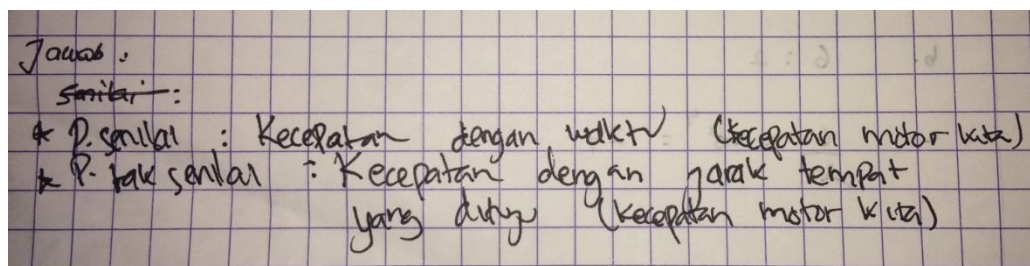 Jawab :
Senilai :
* P. senilai : Kecepatan dengan waktu (Kecepatan motor kita)
* P. tak senilai : Kecepatan dengan jarak tempat
yang dituju (kecepatan motor kita)